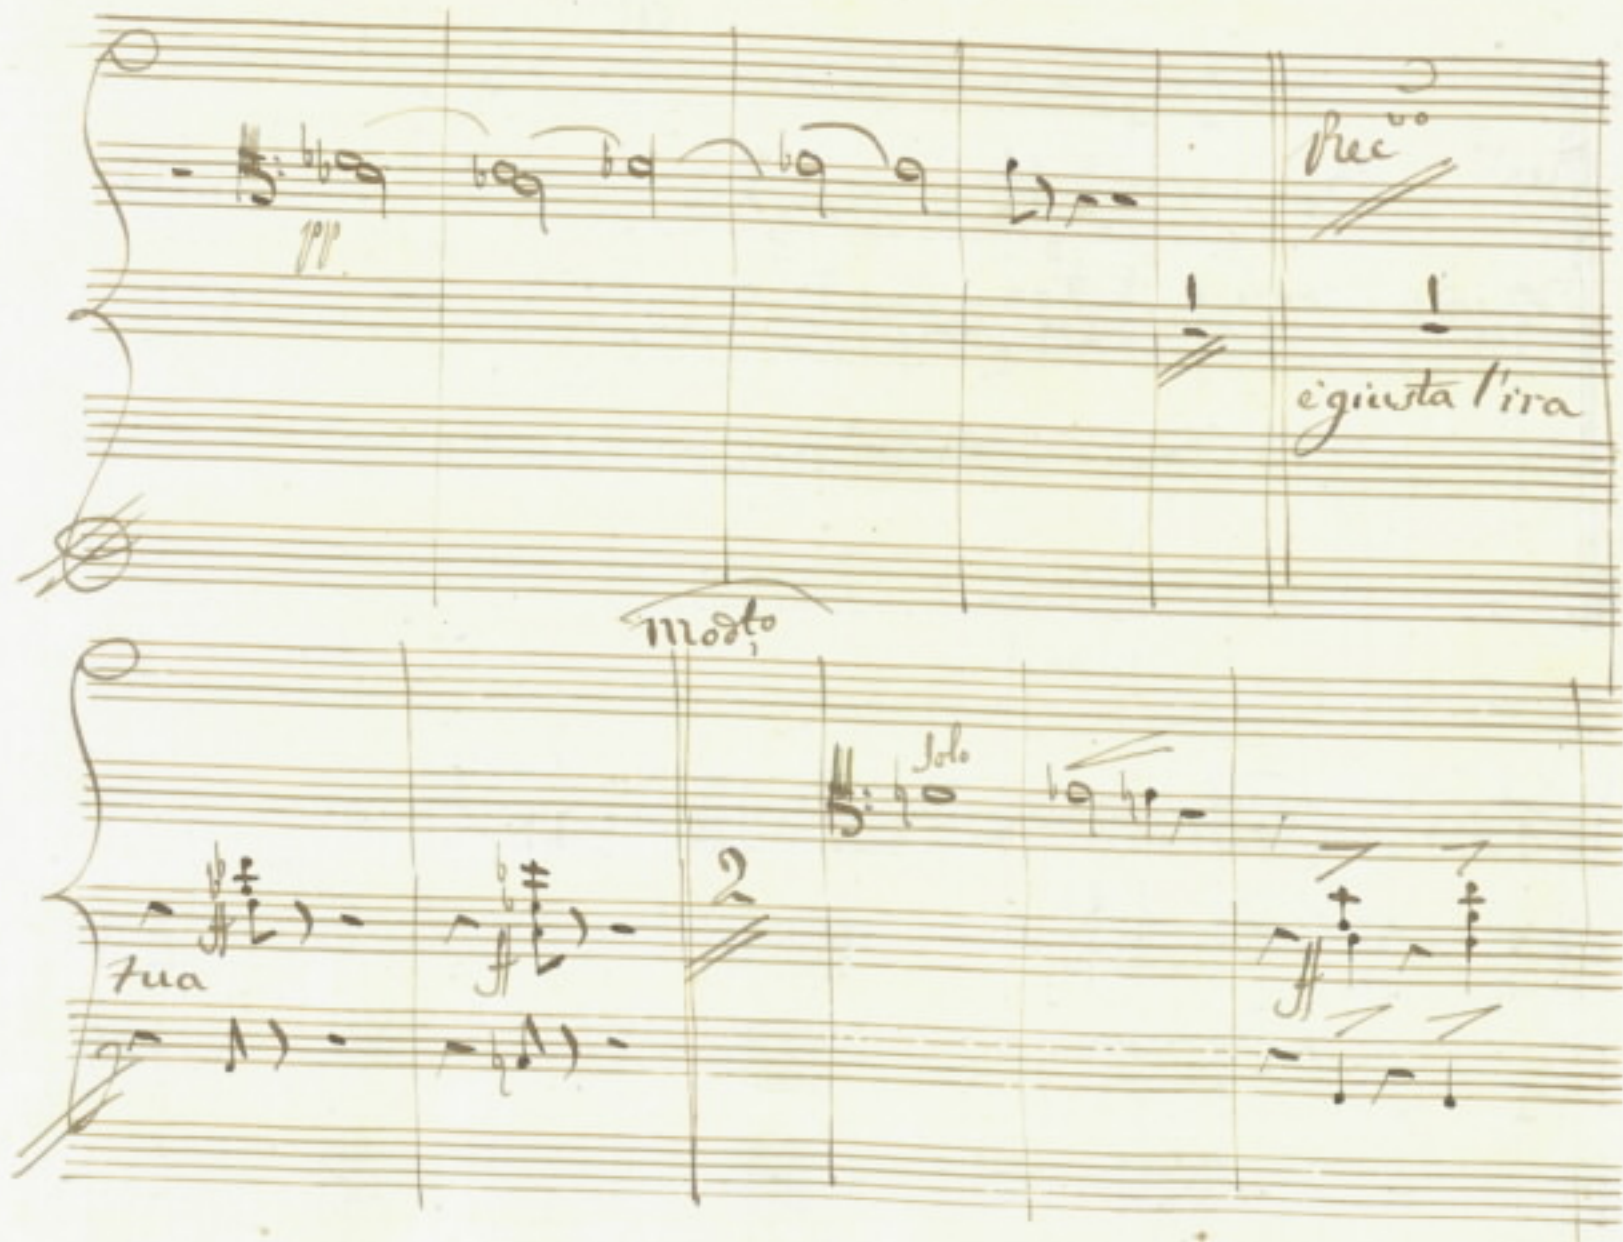 Rec.vo
pp.
1
1
è giusta l'ira
Modto
Solo
2
ff
ff
ff
tua